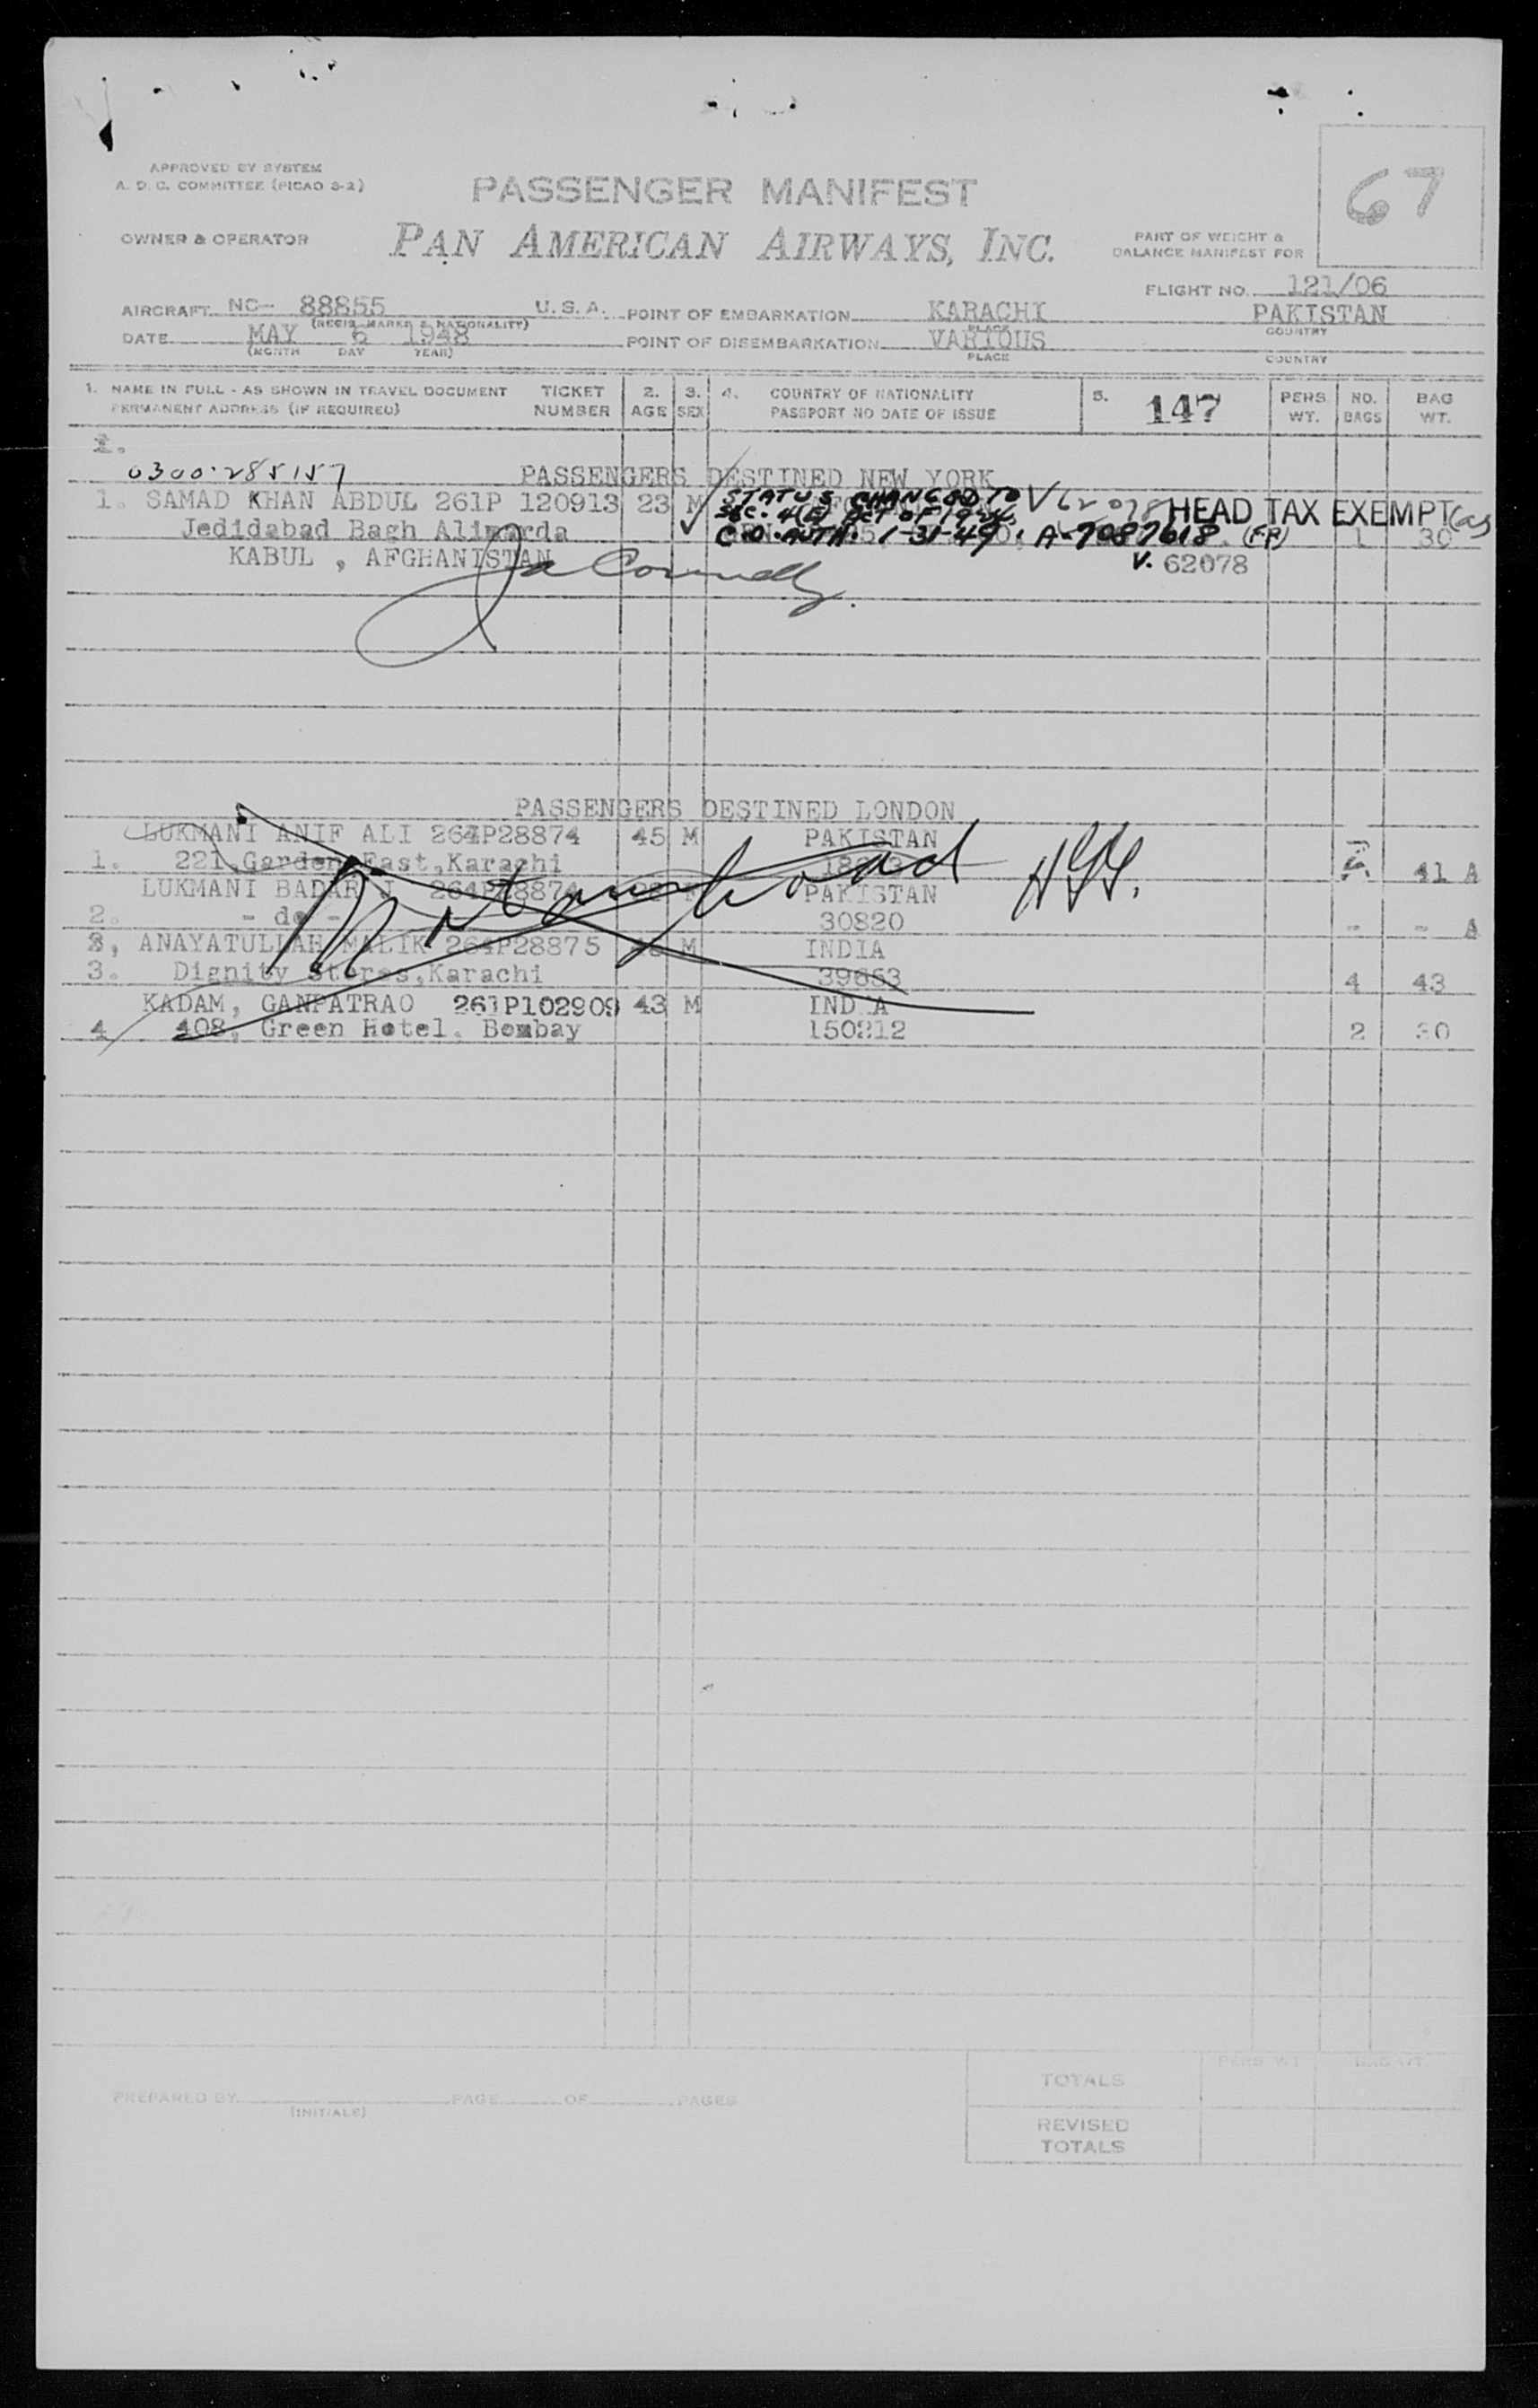 APPROVED BY SYSTEM
A. D. C. COMMITTEE (PICAO S-2)
PASSENGER MANIFEST
67
OWNER & OPERATOR
PAN AMERICAN AIRWAYS, INC.
PART OF WEIGHT &
BALANCE MANIFEST FOR
FLIGHT NO. 121/06
AIRCRAFT NC- 88855 U.S.A. POINT OF EMBARKATION KARACHI PAKISTAN
(REGIS. MARKS & NATIONALITY) PLACE COUNTRY
DATE MAY 6 1948 POINT OF DISEMBARKATION VARIOUS
(MONTH DAY YEAR) PLACE COUNTRY
1. NAME IN FULL - AS SHOWN IN TRAVEL DOCUMENT TICKET 2. 3. 4. COUNTRY OF NATIONALITY 5. 147 PERS. NO. BAG
PERMANENT ADDRESS (IF REQUIRED) NUMBER AGE SEX PASSPORT NO DATE OF ISSUE WT. BAGS WT.
1.
0300-285157 PASSENGERS DESTINED NEW YORK
1. SAMAD KHAN ABDUL 261P 120913 23 M STATUS CHANGED TO V62078 HEAD TAX EXEMPT
SEC. 4(E) ACT OF 1924.
Jedidabad Bagh Alimarda C.O. AUTH. 1-31-49, A-7087618. 1 30
KABUL , AFGHANISTAN V. 62078
PASSENGERS DESTINED LONDON
LUKMANI ANIF ALI 264P28874 45 M PAKISTAN
1. 221,Garden East,Karachi 41 A
LUKMANI 264P28874 PAKISTAN
2. - do - 30820 - - A
3, ANAYATULLAH MALIK 264P28875 M INDIA
3. Dignity Stores,Karachi 39653 4 43
KADAM, GANPATRAO 261P102909 43 M INDIA
4 408, Green Hotel, Bombay 150212 2 30
PERS WT BAG WT.
TOTALS
PREPARED BY PAGE OF PAGES
(INITIALS)
REVISED
TOTALS